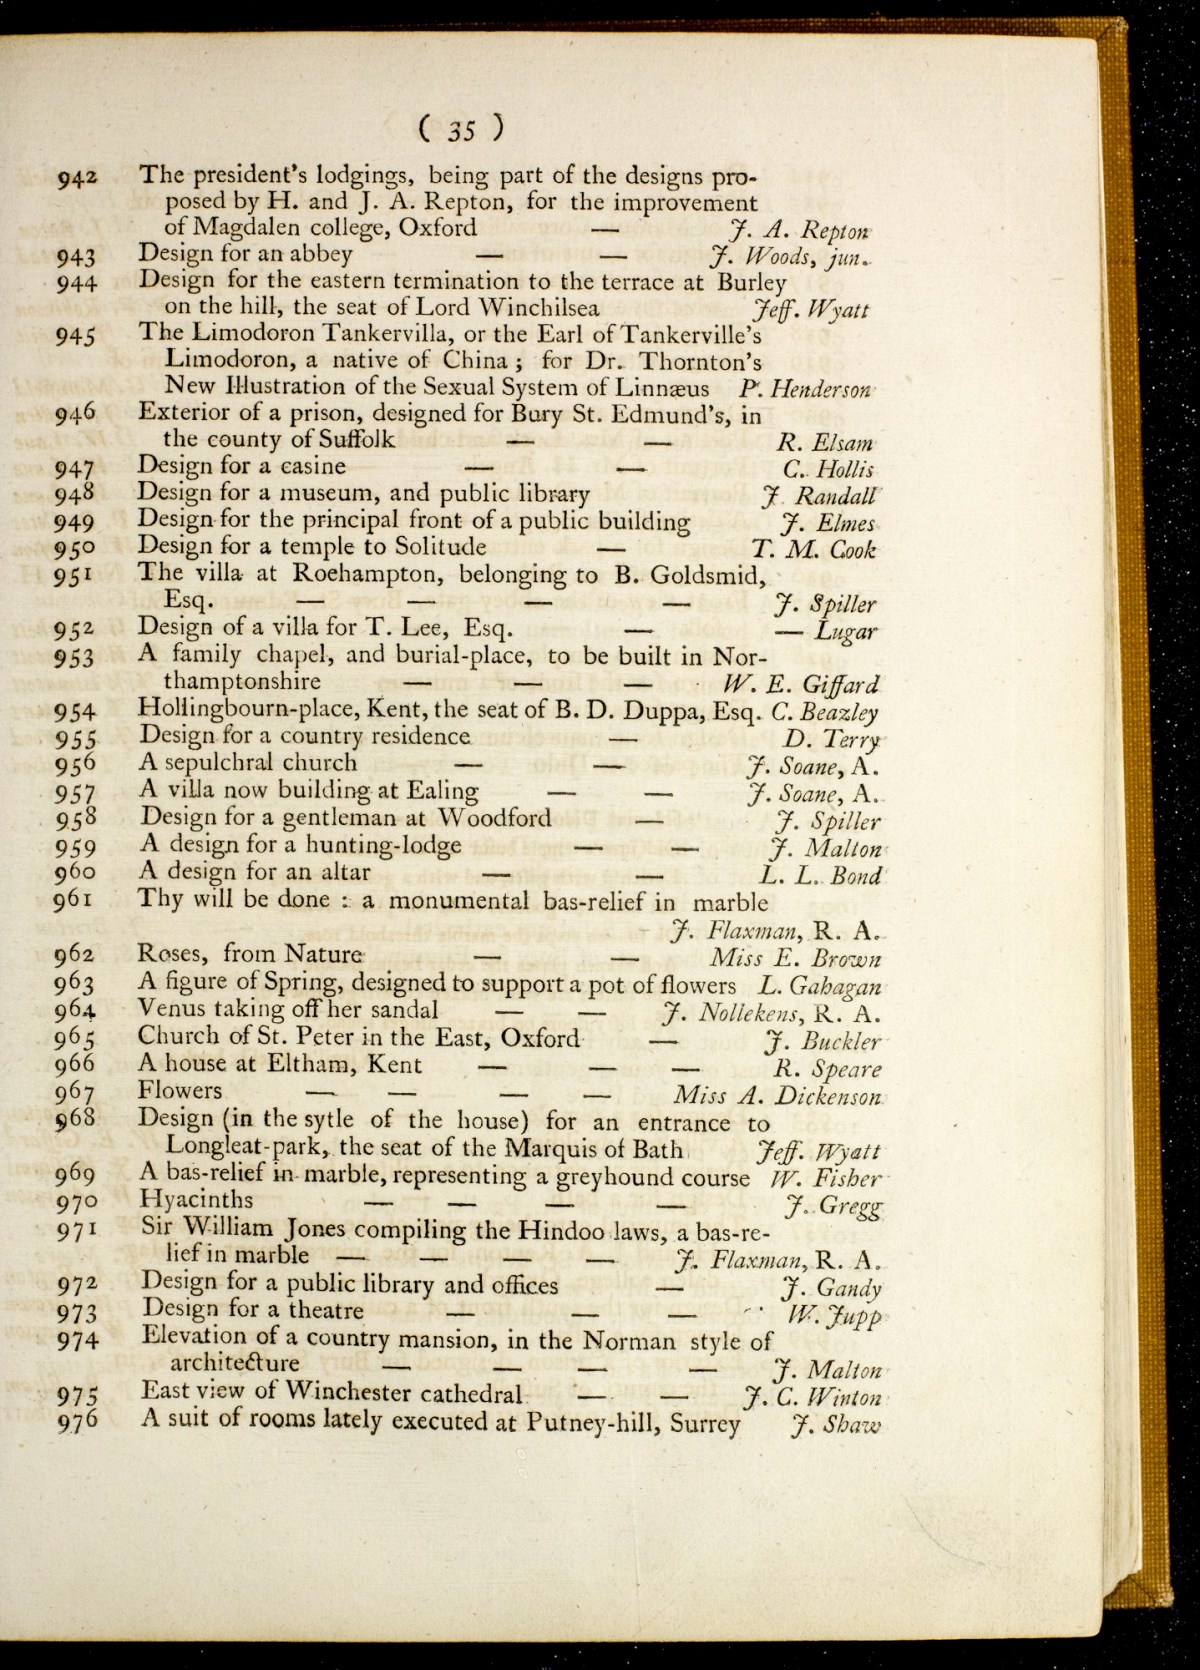 ( 35 )
942 The president's lodgings, being part of the designs pro-
posed by H. and J. A. Repton, for the improvement
of Magdalen college, Oxford — J. A. Repton
943 Design for an abbey — — J. Woods, jun.
944 Design for the eastern termination to the terrace at Burley
on the hill, the seat of Lord Winchilsea Jeff. Wyatt
945 The Limodoron Tankervilla, or the Earl of Tankerville's
Limodoron, a native of China ; for Dr. Thornton's
New Illustration of the Sexual System of Linnæus P. Henderson
946 Exterior of a prison, designed for Bury St. Edmund's, in
the county of Suffolk — — R. Elsam
947 Design for a casine — — C. Hollis
948 Design for a museum, and public library J. Randall
949 Design for the principal front of a public building J. Elmes
950 Design for a temple to Solitude — T. M. Cook
951 The villa at Roehampton, belonging to B. Goldsmid,
Esq. — — — — J. Spiller
952 Design of a villa for T. Lee, Esq. — — Lugar
953 A family chapel, and burial-place, to be built in Nor-
thamptonshire — — — W. E. Giffard
954 Hollingbourn-place, Kent, the seat of B. D. Duppa, Esq. C. Beazley
955 Design for a country residence — D. Terry
956 A sepulchral church — — J. Soane, A.
957 A villa now building at Ealing — — J. Soane, A.
958 Design for a gentleman at Woodford — J. Spiller
959 A design for a hunting-lodge — — J. Malton
960 A design for an altar — — L. L. Bond
961 Thy will be done : a monumental bas-relief in marble
J. Flaxman, R. A.
962 Roses, from Nature — — Miss E. Brown
963 A figure of Spring, designed to support a pot of flowers L. Gahagan
964 Venus taking off her sandal — — J. Nollekens, R. A.
965 Church of St. Peter in the East, Oxford — J. Buckler
966 A house at Eltham, Kent — — — R. Speare
967 Flowers — — — — Miss A. Dickenson
968 Design (in the sytle of the house) for an entrance to
Longleat-park, the seat of the Marquis of Bath Jeff. Wyatt
969 A bas-relief in marble, representing a greyhound course W. Fisher
970 Hyacinths — — — — J. Gregg
971 Sir William Jones compiling the Hindoo laws, a bas-re-
lief in marble — — — — J. Flaxman, R. A.
972 Design for a public library and offices — J. Gandy
973 Design for a theatre — — — W. Jupp
974 Elevation of a country mansion, in the Norman style of
architecture — — — — J. Malton
975 East view of Winchester cathedral — — J. C. Winton
976 A suit of rooms lately executed at Putney-hill, Surrey J. Shaw